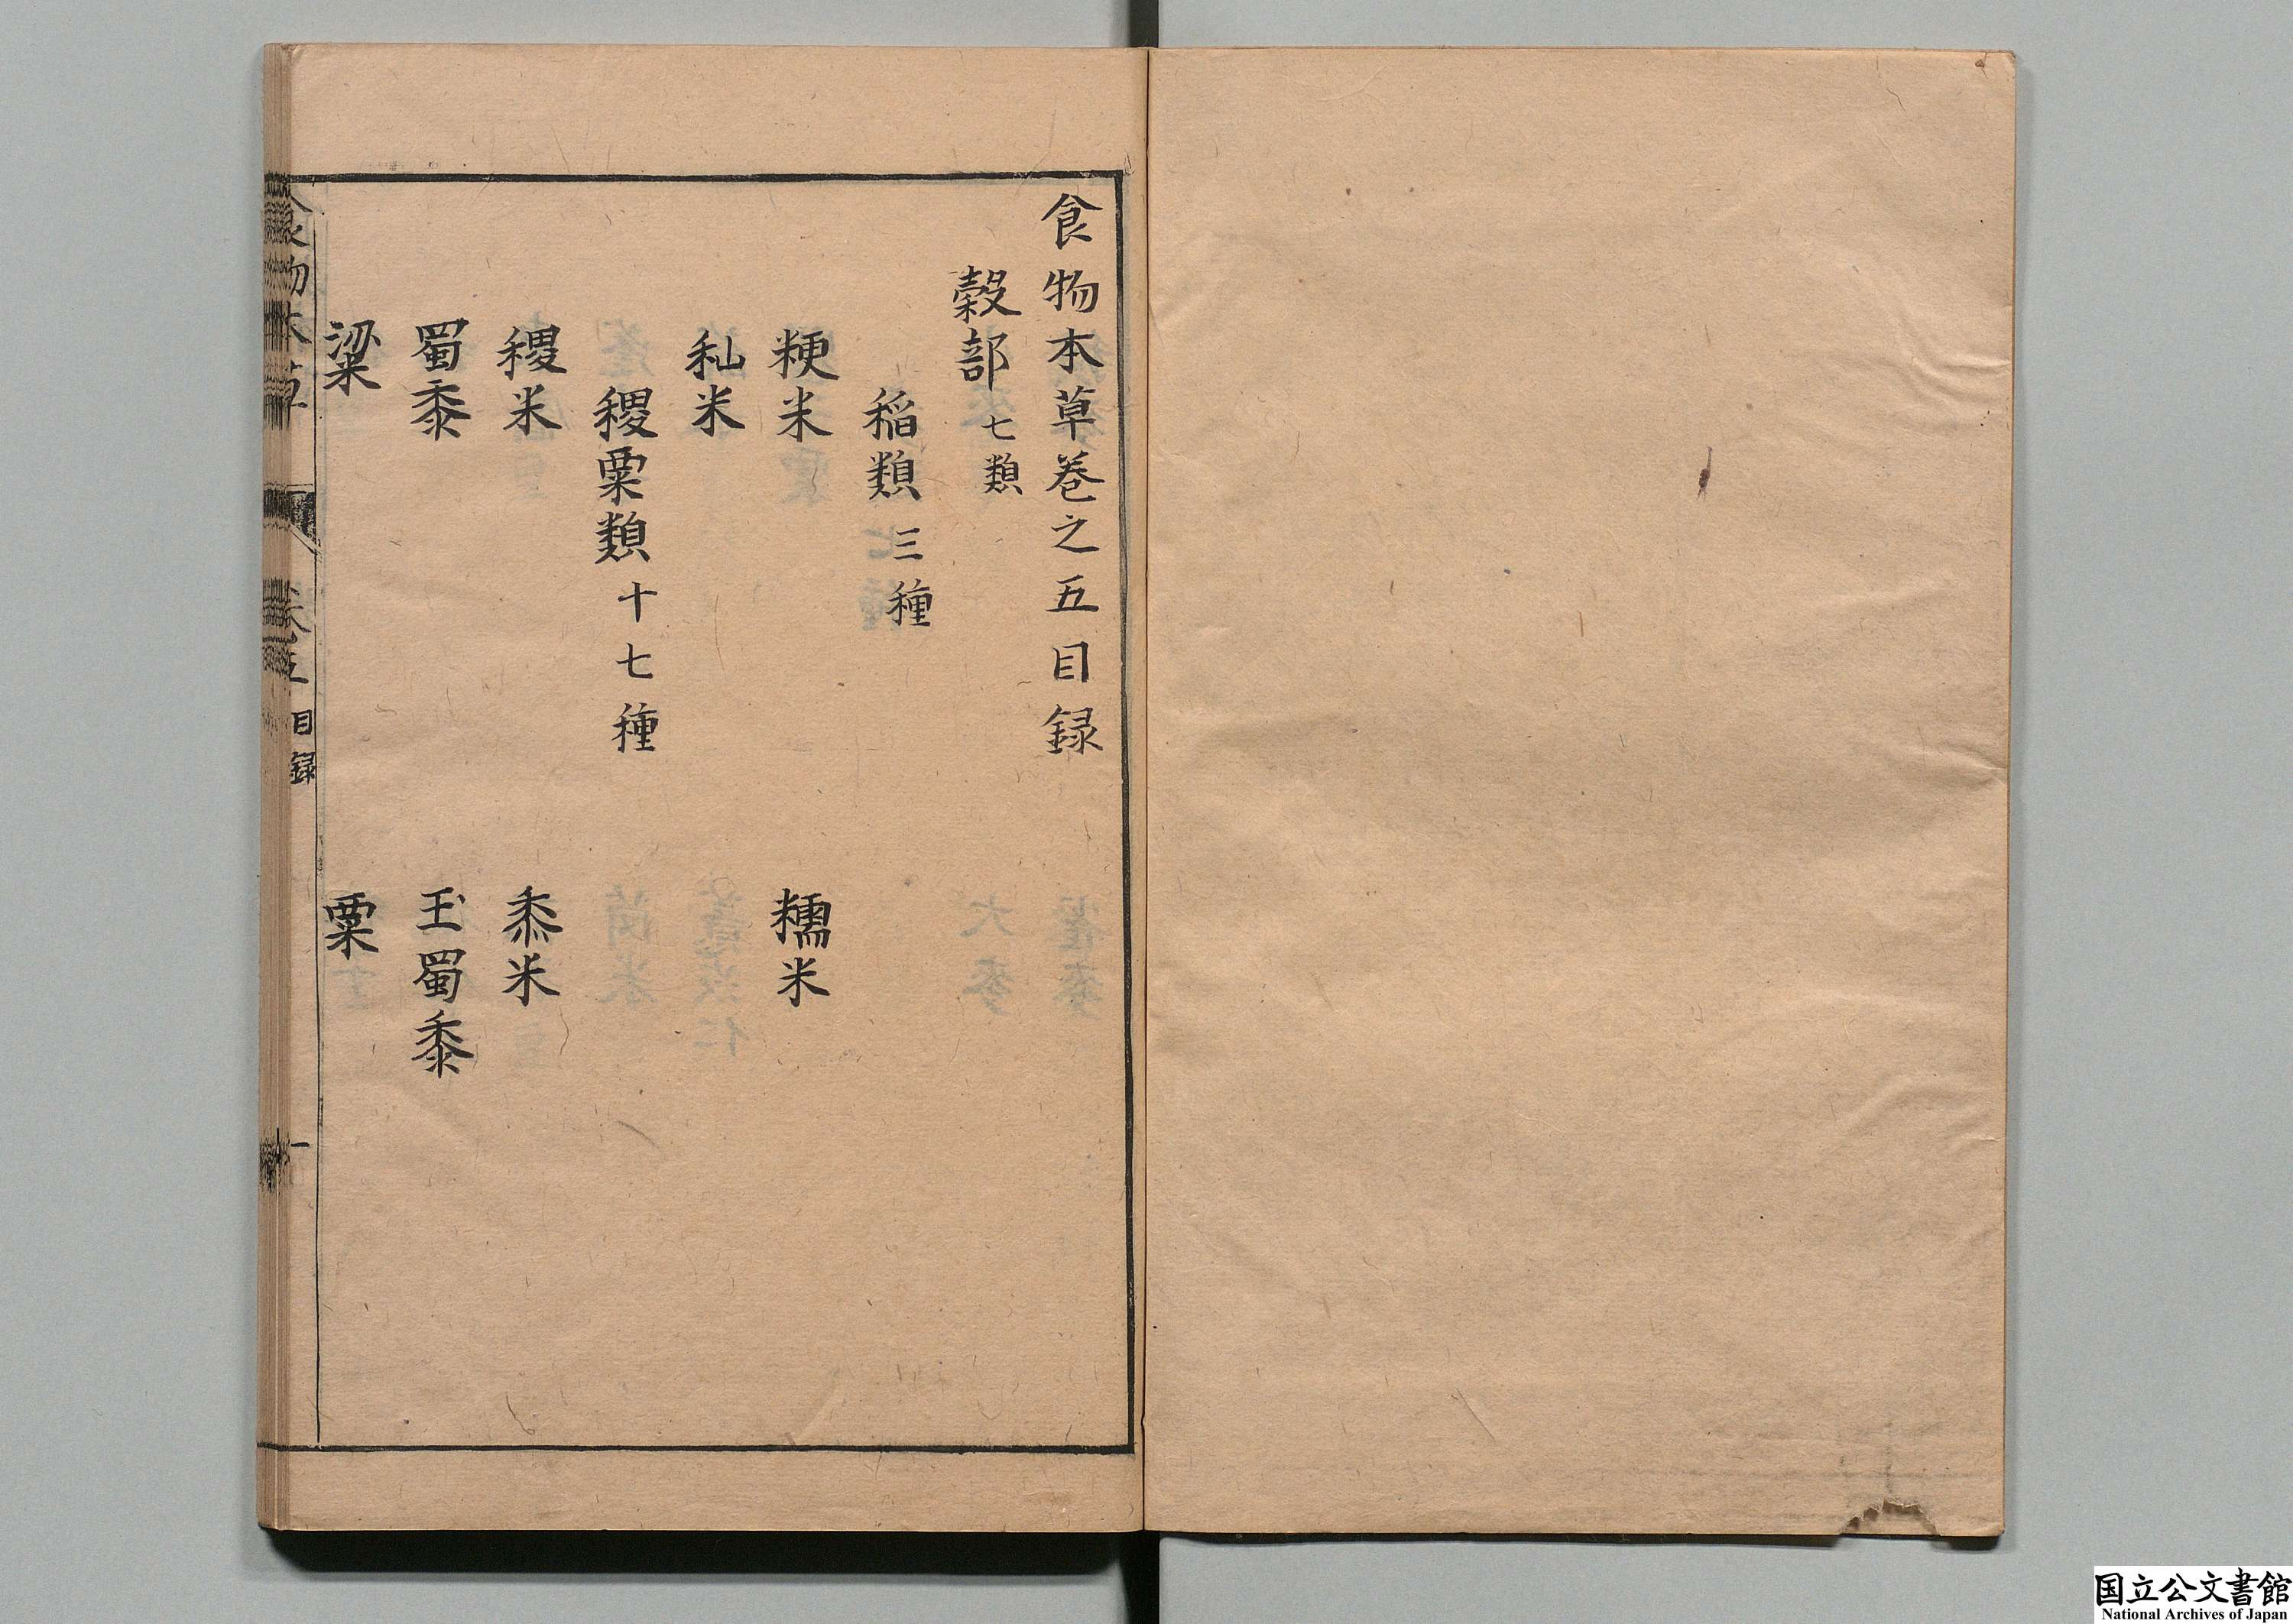 食物本草卷之五目録
穀部 七類
稲類 三種
粳米 糯米
秈米
稷粟類 十七種
稷米 黍米
蜀黍 玉蜀黍
粱 粟
食物本草 卷五 目録 一
国立公文書館
National Archives of Japan